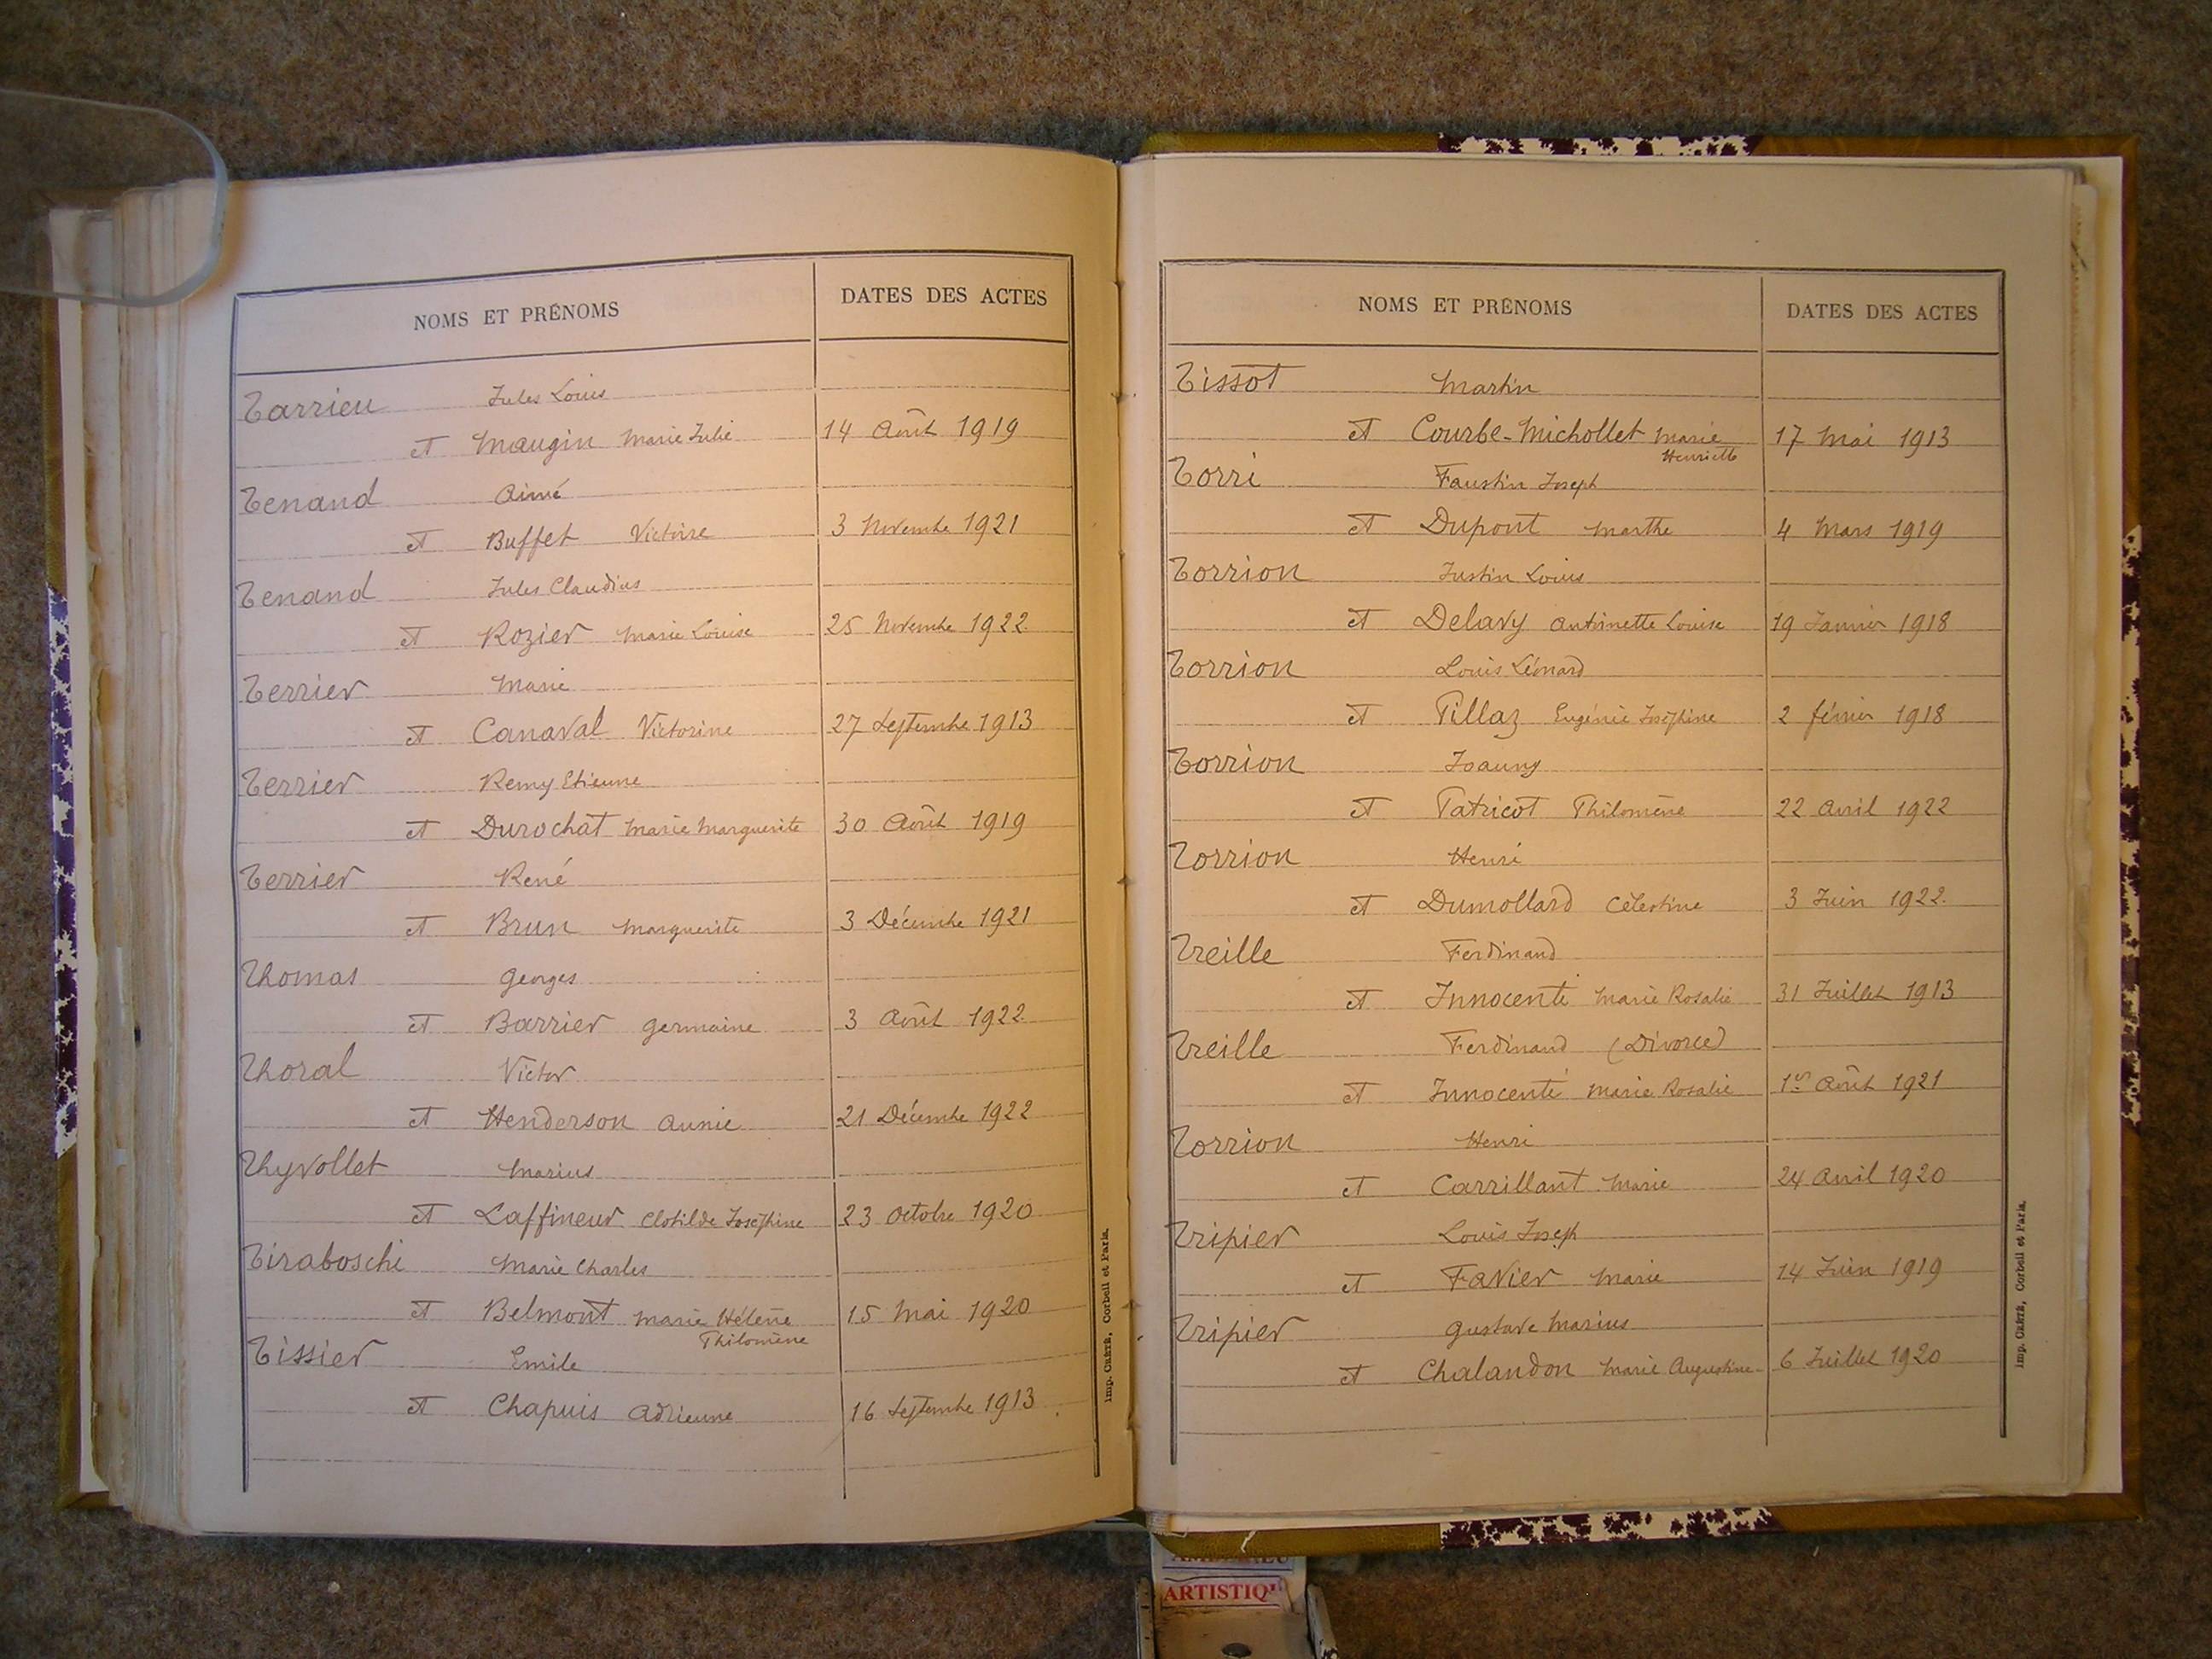 NOMS ET PRÉNOMS DATES DES ACTES
Tarrieu Jules Louis
et Maugin Marie Julie 14 Août 1919
Tenand Aimé
et Buffet Victoire 3 Novembre 1921
Tenand Jules Claudius
et Rozier Marie Louise 25 Novembre 1922
Terrier Marie
et Canaval Victorine 27 Septembre 1913
Terrier Remy Etienne
et Durochat Marie Marguerite 30 Août 1919
Terrier René
et Brun Marguerite 3 Décembre 1921
Thomas Georges
et Barrier Germaine 3 Août 1922
Thoral Victor
et Henderson Annie 21 Décembre 1922
Thyvollet Marius
et Laffineur Clotilde Joséphine 23 Octobre 1920
Tiraboschi Marie Charles
et Belmont Marie Hélène 15 Mai 1920
Philomène
Tissier Emile
et Chapuis Adrienne 16 Septembre 1913
Imp. CRÉTÉ, Corbeil et Paris.
NOMS ET PRÉNOMS DATES DES ACTES
Tissot Martin
et Courbe-Michollet Marie 17 Mai 1913
Henriette
Torri Faustin Joseph
et Dupont Marthe 4 Mars 1919
Torrion Justin Louis
et Delavy Antoinette Louise 19 Janvier 1918
Torrion Louis Léonard
et Pillaz Eugénie Joséphine 2 février 1918
Torrion Joanny
et Patricot Philomène 22 Avril 1922
Torrion Henri
et Dumollard Célestine 3 Juin 1922
Treille Ferdinand
et Innocenti Marie Rosalie 31 Juillet 1913
Treille Ferdinand (Divorce)
et Innocenti Marie Rosalie 1er Août 1921
Torrion Henri
et Carrillant Marie 24 Avril 1920
Tripier Louis Joseph
et Favier Marie 14 Juin 1919
Tripier Gustave Marius
et Chalandon Marie Augustine 6 Juillet 1920
Imp. CRÉTÉ, Corbeil et Paris.
ARTISTIQ